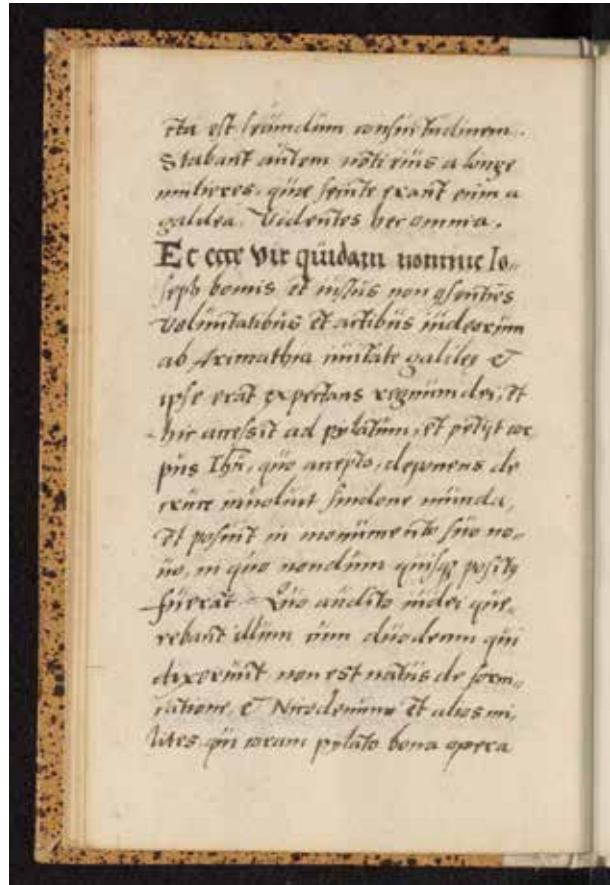 cta est secundum consuetudinem.
Stabant autem noti eius a longe
mulieres, que secute erant eum a
galilea. Videntes hec omnia.
Et ecce vir quidam nomine Io-
seph bonus et iustus non gsentiēs
voluntatibus et actibus iudeorum
ab Arimathia civitate galileę &
ipse erat expectans regnum dei, Et
hic accessit ad pylatum, et petyt cor
pus Ihū, quo accepto, deponens de
cruce involvit sindone munda,
Et posuit in monumento suo no-
vo, in quo nondum quisqȝ positꝰ
fuerat. Quo audito iudei que-
rebant illum cum duodecim qui
dixerunt non est natus de forni-
catione, & Nicodemum et alios mi-
lites, qui coram pylato bona opera